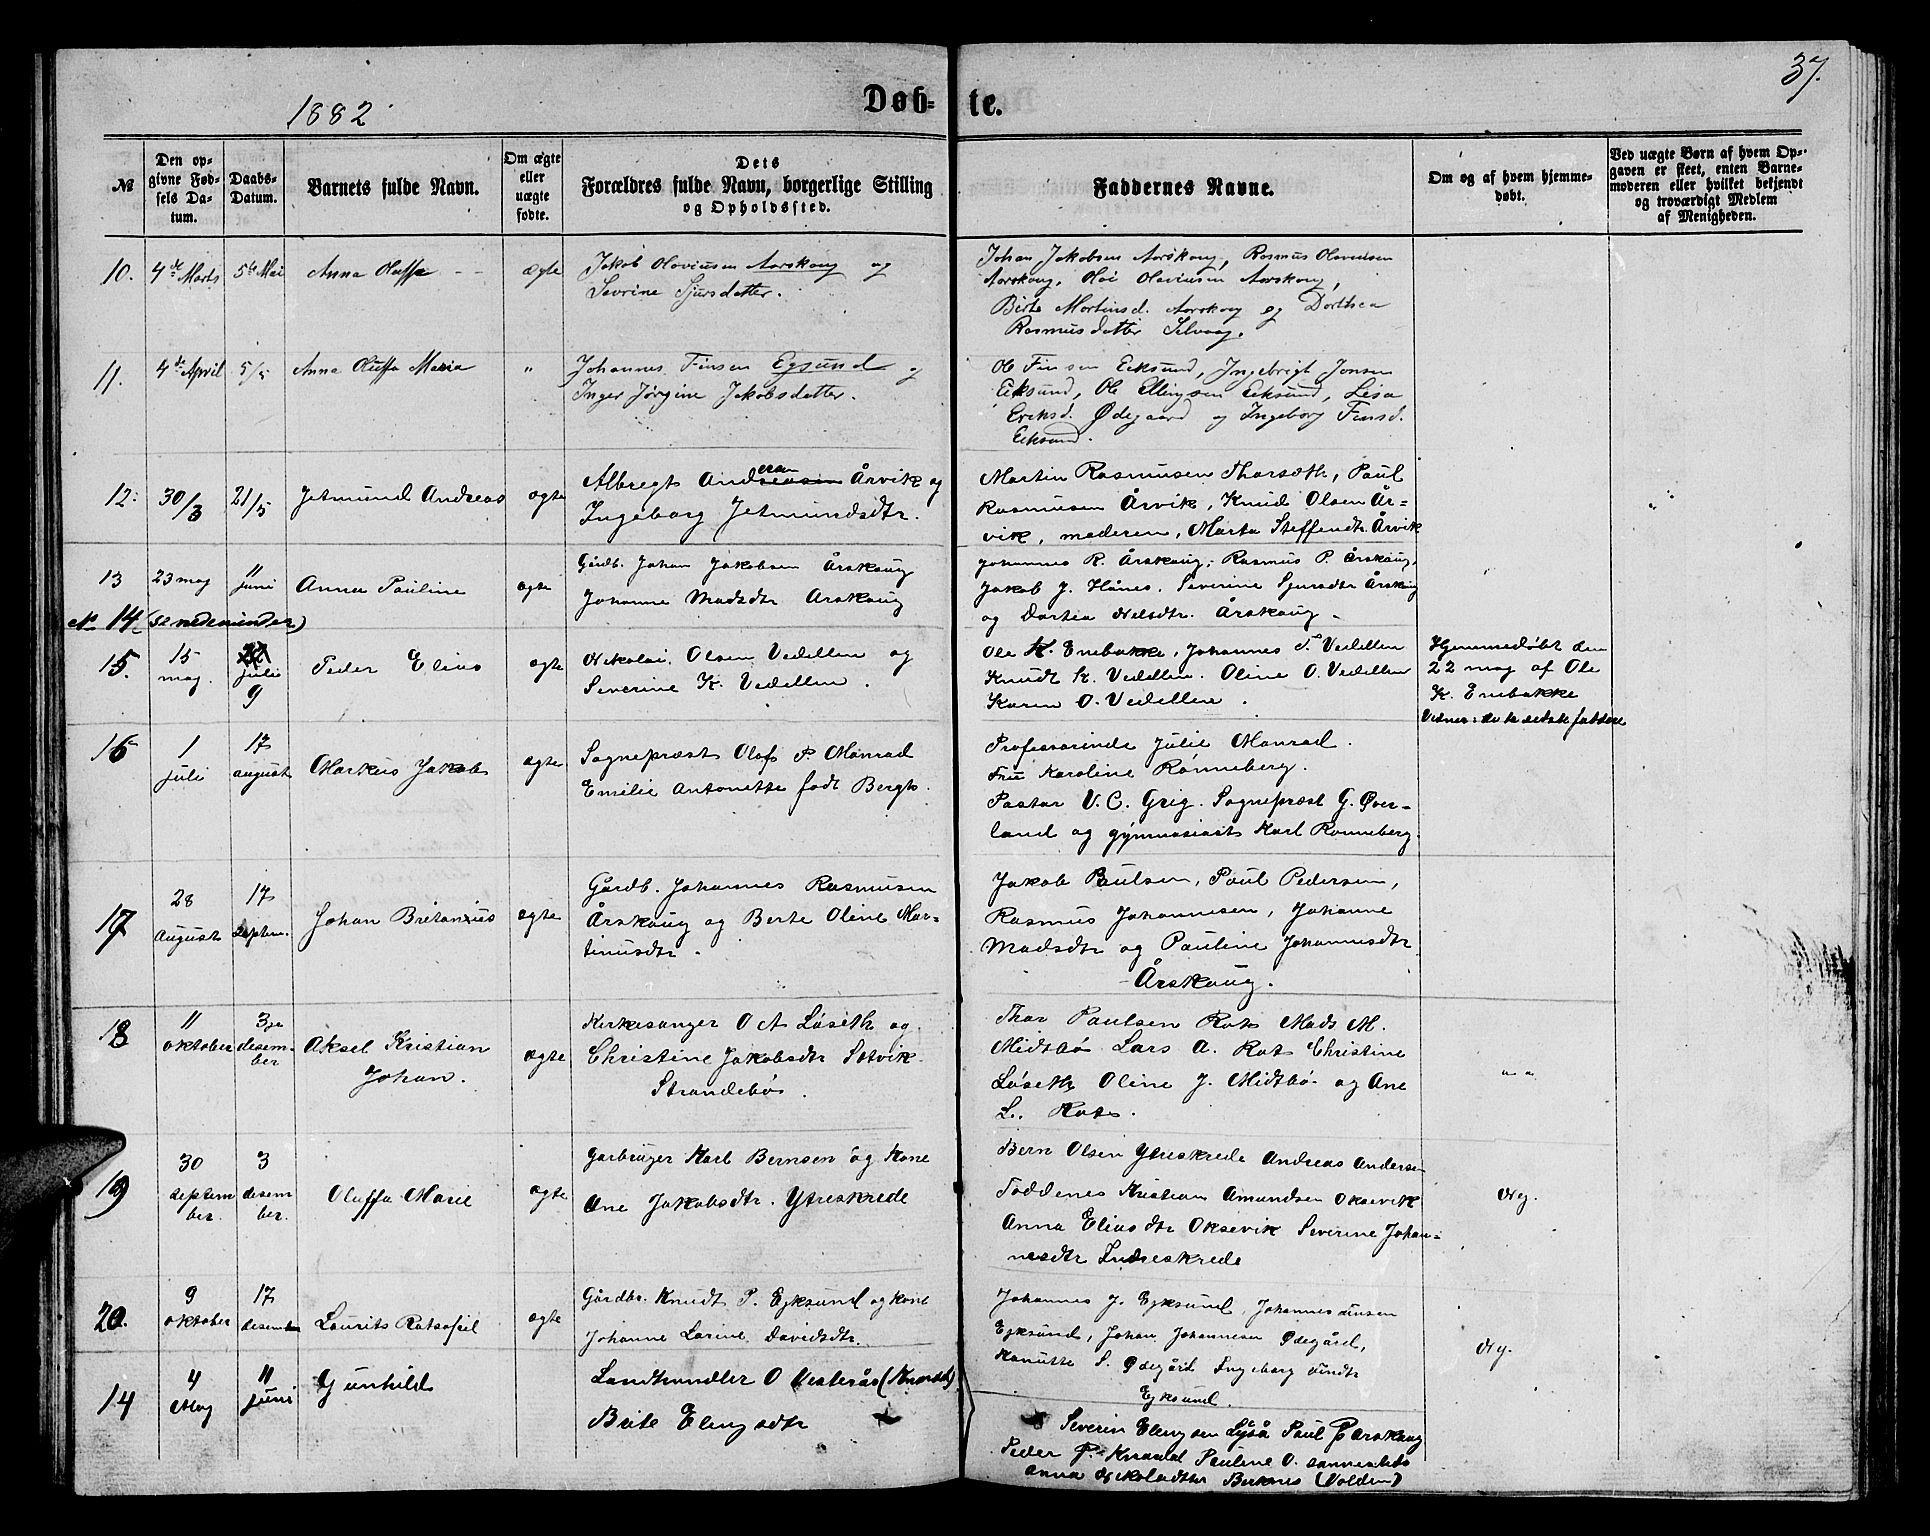 37.
1882
Døb- te.
№
Den opgivne Fødsels Datum.
Daabs-Datum.
Barnets fulde Navn.
Om ægte eller uægte fødte.
Dets Forældres fulde Navn, borgerlige Stilling og Opholdssted.
Faddernes Navne.
Om og af hvem hjemmedøbt.
Ved uægte Børn af hvem Opgaven er skeet, enten Barnemoderen eller hvilket bekjendt og troværdigt Medlem af Menigheden.
10. 4de Marts 5te Mai Anna Oluffa ægte
Jakob Olaviusen Aarskoug og
Sevrine Sjursdatter.
Johan Jakobsen Aarskoug, Rasmus Olaviusen
Aarskoug, Olai Olaviusen Aarskoug,
Birte Martinsd. Aarskoug og Dorthea
Rasmusdatter Selvaag.
11. 4de April 5/5 Anna Oluffa Maria "
Johannes Finsen Egsund og
Inger Jørgine Jakobsdatter.
Ole Finsen Eiksund, Ingebrigt Jonsen
Eiksund, Ole Ellingsen Eiksund, Lisa
Eriksd. Ødegaard og Ingeborg Finsd.
Eiksund.
12. 30/3 21/5 Jetmund Andreas ægte
Albregt Andreasen Årvik og
Ingeborg Jetmundsdtr.
Martin Rasmusen Tharsæth, Paul
Rasmusen Årvik, Knud Olsen År-
vik, moderen, Marta Steffendtr. Årvik
13 23 maj 11 juni Anna Pauline ægte
Gårdb. Johan Jakobsen Årskoug
Johanne Madsdtr Arskoug
Johannes R. Årskoug, Rasmus P. Årskoug,
Jakob J. Hånes, Severine Sjursdtr Årskoug
og Dortea Nilsdtr. Årskoug.
N. 14 (se nedenunder)
15. 15 maj. juli 9 Peder Elias ægte
Nikolai Olsen Vedellen og
Severine K. Vedellen.
Ole K. Enebakke, Johannes T. Vedellen
Knudt K. Vedellen. Oline O. Vedellen
Karen O. Vedellen.
Hjemmedøbt den
22 maj af Ole
K. Enebakke
16 1 juli 17 august Markus Jakob ægte
Sognepræst Olaf P. Monrad
Emilie Antonette født Bergh.
Professorinde Julie Monrad.
Fru Karoline Rønneberg.
Pastor V. C. Grig. Sognepræst G. Øver-
land og gymnasiast Karl Rønneberg.
17 28 August 17 Septem. Johan Britanius ægte
Gårdb. Johannes Rasmusen
Årskoug og Berte Oline Mar-
tinusdtr.
Jakob Paulsen, Paul Pedersen,
Rasmus Johannesen, Johanne
Madsdtr og Pauline Johannesdtr
Årskoug.
18 11 oktober 3je desember Aksel Kristian
Johan. ægte
Kirkesanger O A Løseth og
Christine Jakobsdtr Sætvik
Strandebø.
Thor Paulsen Rots Mads M.
Midtbø Lars A. Rots Christine
Løseth Oline J. Midtbø og Ane
L. Rots.
19 30 september 3 desember. Oluffa Marie ægte
Garbruger Karl Bernsen og Kone
Ane Jakobsdtr. Ytreskrede
Bern Olsen Ytreskrede Andreas Andersen
Føddenes Kristian Amundsen Oksevik
Anna Eliasdtr Oksevik Severine Johan-
nesdtr Indreskrede
Nej.
20. 9 oktober 17 desember Laurits ægte
Gårdbr. Knudt P. Ejksund og Kone
Johanne Larine Davidsdtr.
Johannes J. Ejksund, Johannes
Ejksund, Johan Johannesen Ødegård,
Kanutte S. Ødegård Ingeborg
Ejksund.
Nej.
14 4 Maj 11 juni Gunhild
Landhandler O Vesterås
Brite Elingsdtr
Severin Elingsen Lyså Paul P Arskoug
Peder P. Pauline O.
Anna Nikolaidtr Berknes (Volden)